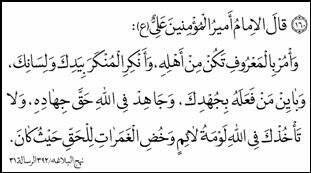 ﴿١٦٠﴾ قالَ الاِمامُ أَميرُ الْمُؤْمِنينَ عَلىٌّ (ع):
وَأْمُرْ بِالْمَعْرُوفِ تَكُنْ مِنْ اَهْلِهِ، وَأَنْكِرِ الْمُنْكَرَ بِيَدِكَ وَلِسانِكَ،
وَبايِنْ مَنْ فَعَلَهُ بِجُهْدِكَ. وَجاهِدْ فِى اللّٰهِ حَقَّ جِهادِهِ. وَلا
تَأْخُذْكَ فِى اللّٰهِ لَوْمَةُ لائِمٍ وَخُضِ الْغَمَراتِ لِلْحَقِّ حَيْثُ كانَ.
نهج البلاغه/٣٩٢ الرسالة ٣١